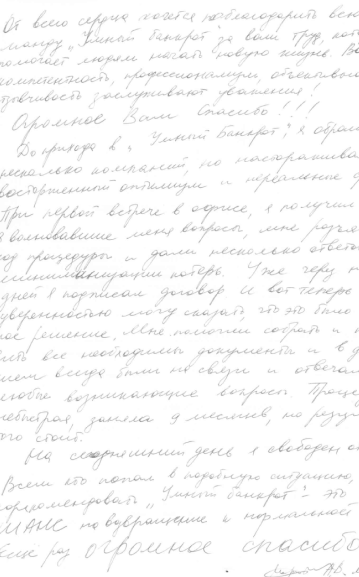 От всего сердца хочется поблагодарить всю
манду „Умный банкрот" за ваш труд, кото
помогает людям начать новую жизнь. Ва
компетентность, профессионализм, отзывчив
заслуживают уважения!
Огромное Вам спасибо!!!
До прихода в „Умный Банкрот", я обрам
несколько компаний, но настораживал
восторженный оптимизм и нереальные
При первой встрече в офисе, я получил
волновавшие меня вопросы, мне разъя
ход процедуры и дали несколько ответов
минимизации потерь. Уже через н
дней я подписал договор. И вот теперь
уверенностью могу сказать, что это было
ное решение. Мне помогли собрать и
все необходимы документы и в д
ем всегда были на связи и отвечал
любые возникающие вопросы. Проце
небыстрая, заняла 9 месяцев, но резул
того стоит.
На сегодняшний день я свободен от
Всем кто попал в подобную ситуацию,
рекомендовать „Умный банкрот" - это
ШАНС на возвращение к нормальной
Еще раз огромное спасибо